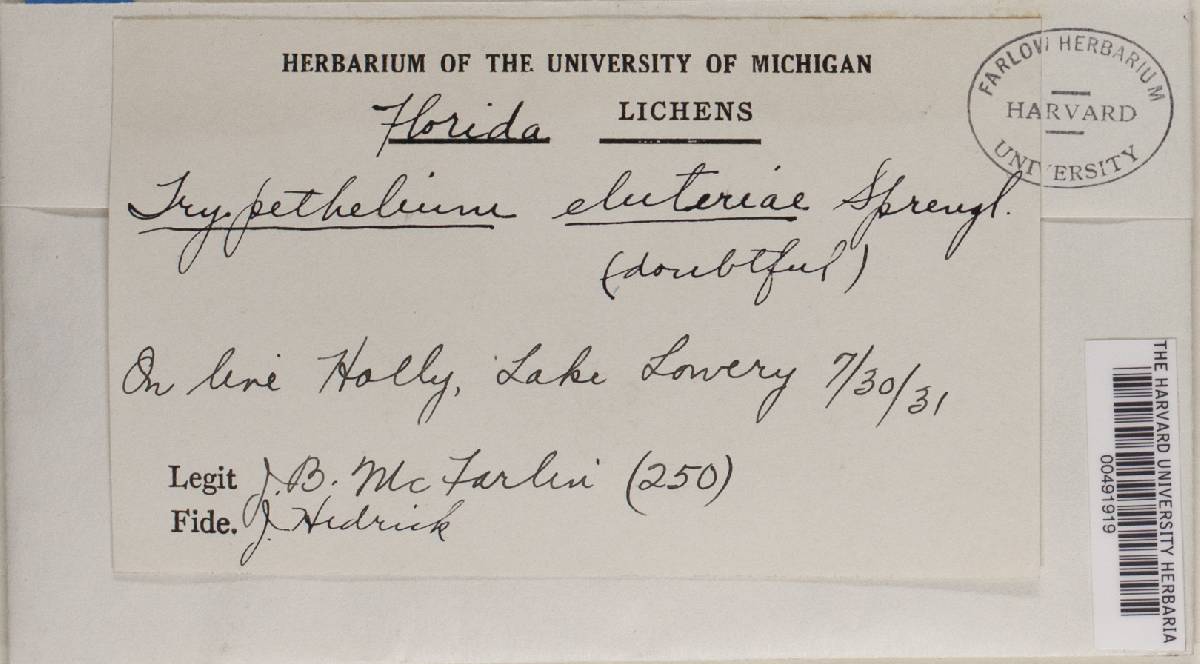 HERBARIUM OF THE UNIVERSITY OF MICHIGAN
Florida LICHENS
Trypethelium eluteriae Sprengl.
(doubtful)
On live Holly, Lake Lowery 7/30/31
Legit J. B. McFarlin (250)
Fide. J. Hedrick
FARLOW HERBARIUM
HARVARD
UNIVERSITY
THE HARVARD UNIVERSITY HERBARIA
00491919